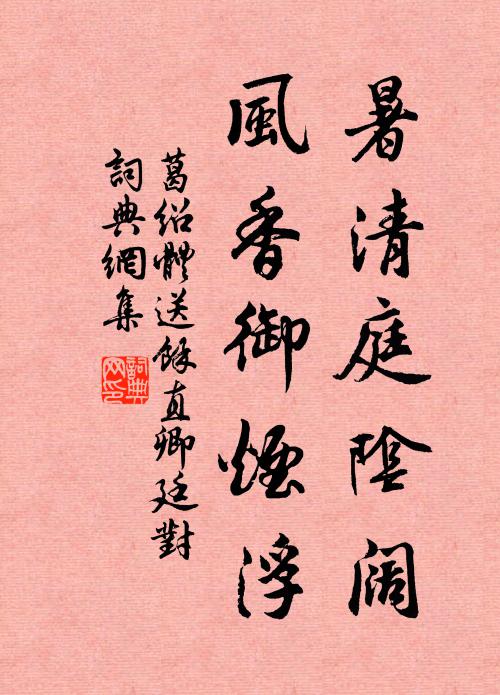 暑清庭陰闊
風香御煙浮
葛紹體送餘直卿廷對
詞典網集
詞典網印